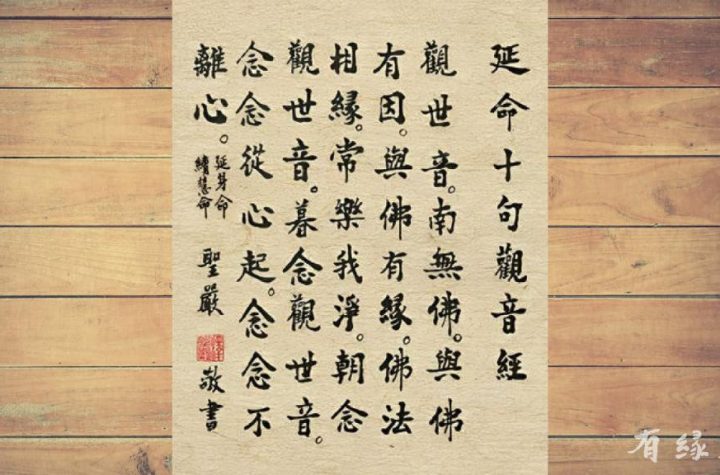 延命十句觀音經
觀世音。南無佛。與佛
有因。與佛有緣。佛法
相緣。常樂我淨。朝念
觀世音。暮念觀世音。
念念從心起。念念不
離心。
延身命
續慧命
聖嚴
敬書
有緣